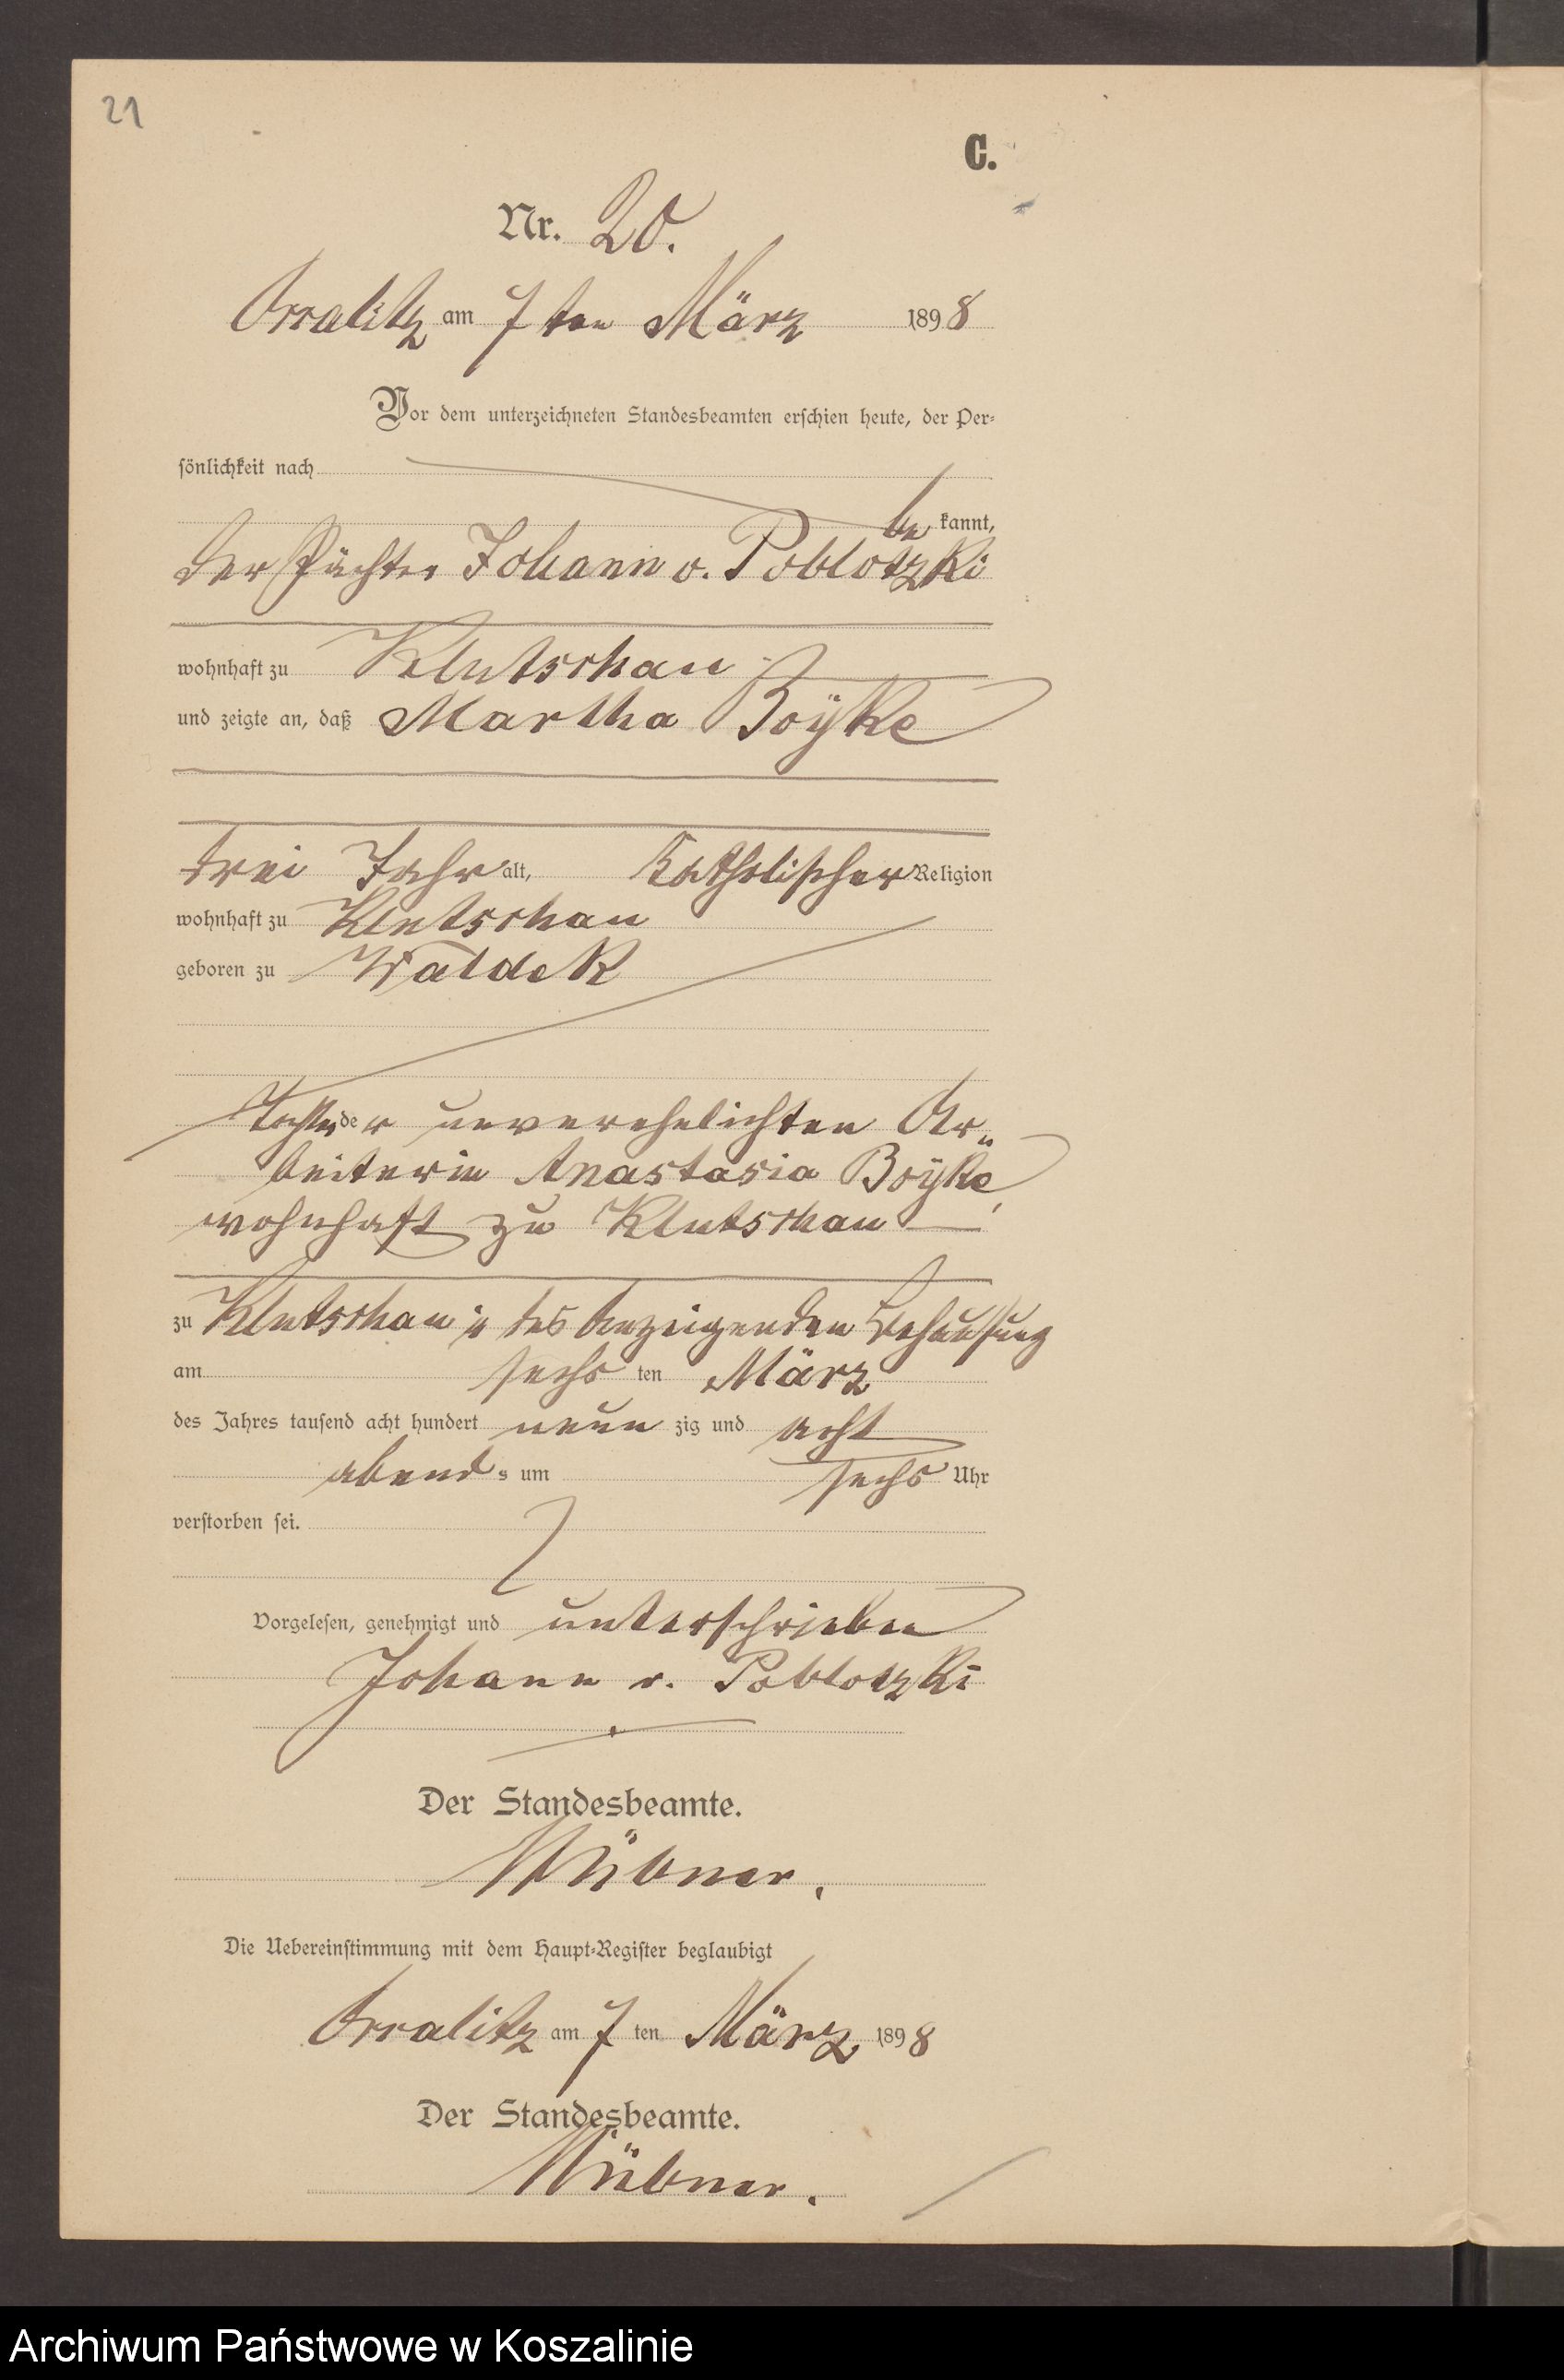 21
C.
Nr. 20.
Ossalitz am 7 ten März 1898
Vor dem unterzeichneten Standesbeamten erschien heute, der Per-
sönlichkeit nach
be kannt,
der Pächter Johann v. Poblotzki
wohnhaft zu Klutschau
und zeigte an, daß Martha Boÿke
drei Jahr alt, Katholischer Religion
wohnhaft zu Klutschau
geboren zu Waldek
Tochter der unverehelichten Ar-
beiterin Anastasia Boÿke,
wohnhaft zu Klutschau
zu Klutschau in des Anzeigenden Behausung
am sechs ten März
des Jahres tausend acht hundert neun zig und acht
abend s um sechs Uhr
verstorben sei.
Vorgelesen, genehmigt und unterschrieben
Johann v. Poblotzki
Der Standesbeamte.
Die Uebereinstimmung mit dem Haupt-Register beglaubigt
Ossalitz am 7 ten März 1898
Der Standesbeamte.
Archiwum Państwowe w Koszalinie